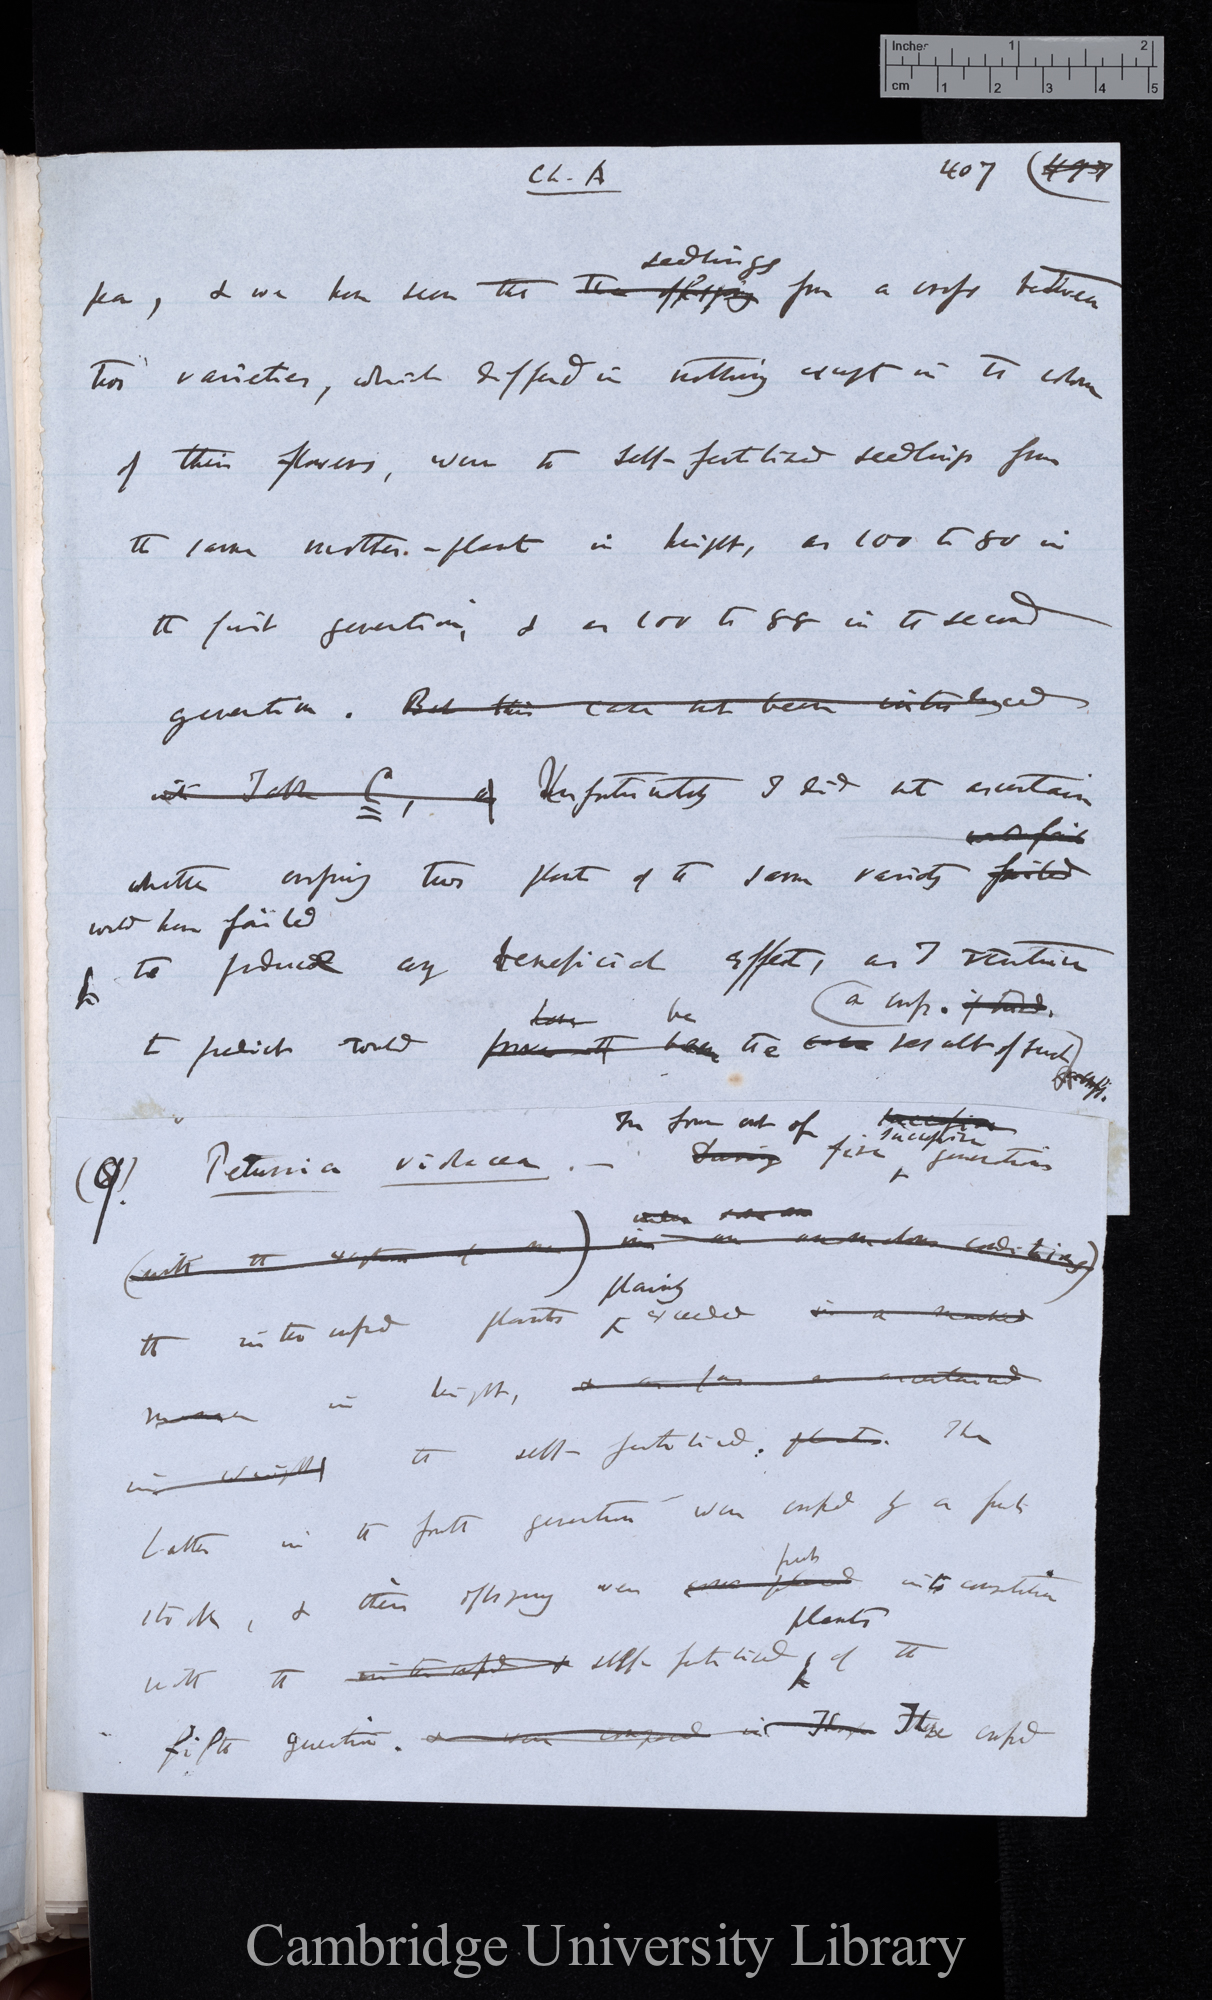 Ch. A
407 (497
seedlings
pea, & we have seen that the offspring from a cross between
two varieties, which differed in nothing except in the colour
of their flowers, were to self-fertilised seedlings from
the same mother-plant in height, as 100 to 80 in
the first generation, & as 100 to 88 in the second
generation. But this case not been introduced
into Table C, as Unfortunately I did not ascertain
whether crossing two plants of the same variety failed
would have failed
to produce any beneficial effect, as I venture
have be (a cross.
to predict would been the case result of such
In four out of succession
(Q). Petunia violacea. — During five successive generations
(with the exception of one) in an anomalous condition)
plainly
the intercrossed plants exceeded in a marked
manner in height, & as far as ascertained
in weight the self-fertilised. plants. The
latter in the fourth generation were crossed by a fresh
fresh
stock, & their offspring were placed into competition
plants
with the intercrossed & self-fertilised of the
fifth generation. & were compared in These crossed
Inches 1 2
cm 1 2 3 4 5
Cambridge University Library